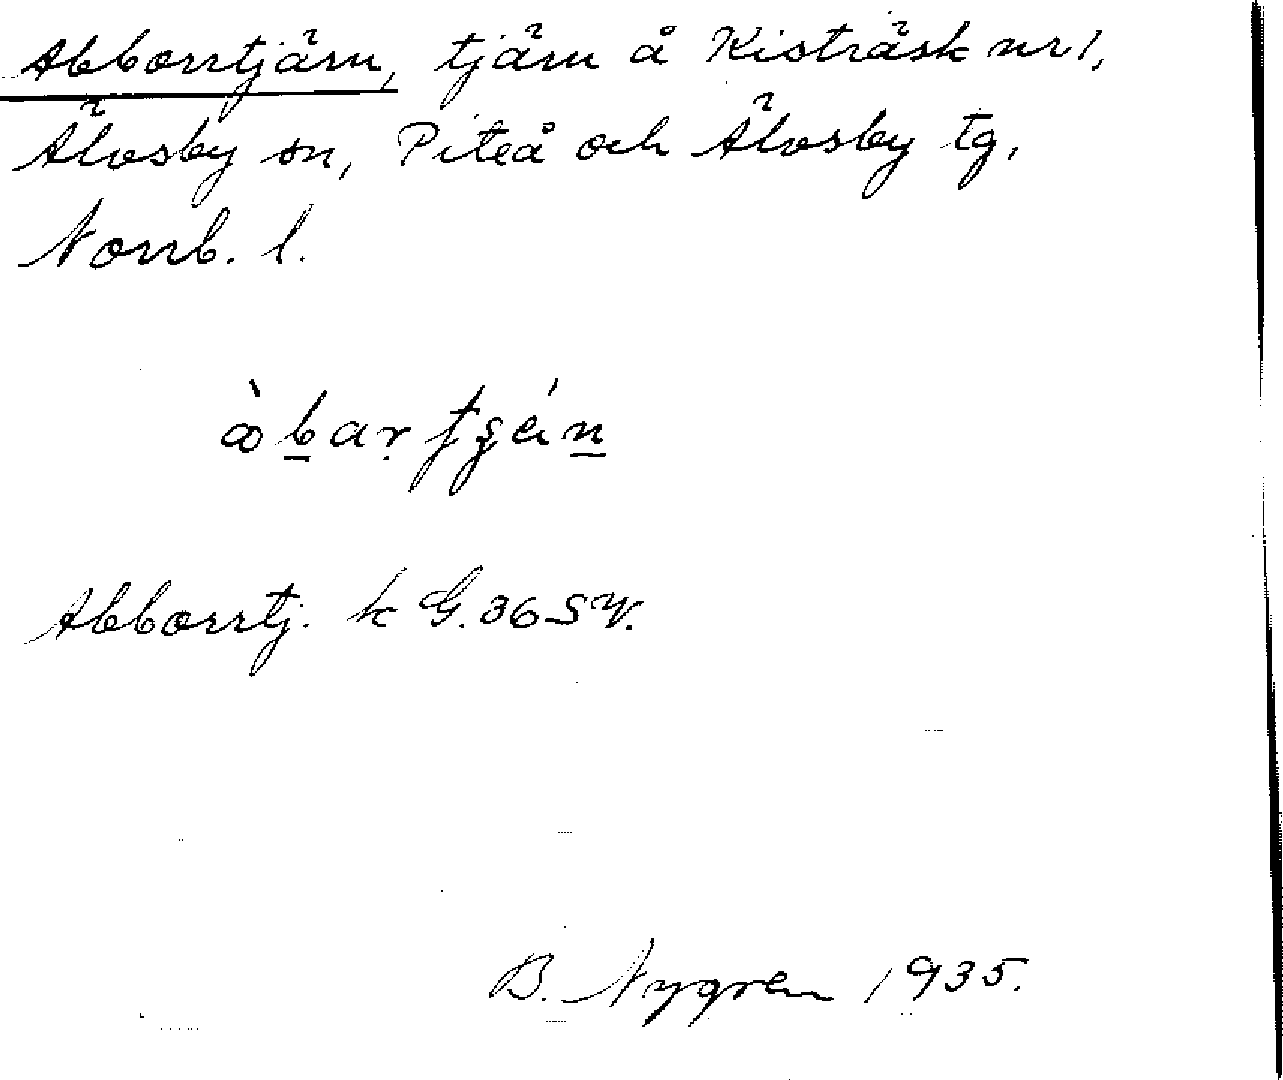 Abborrtjärn, tjärn å Kisträsk nr 1,
Älvsby sn, Piteå och Älvsby tg,
Norrb. l.
Abborrtj. k G. 36 SV.
B. Nygren 1935.